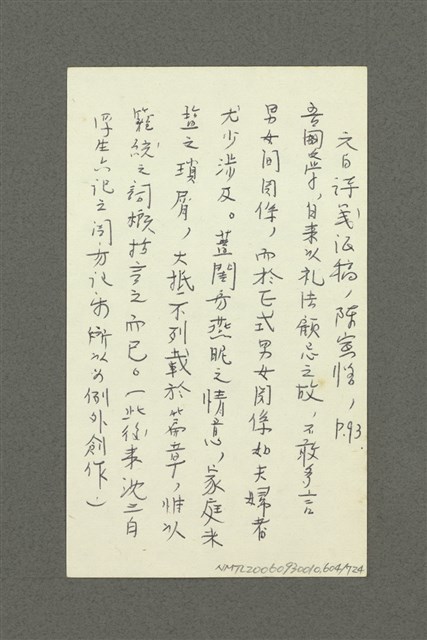 元白詩箋证稿，陈寅恪，P.93.
吾國文学，自来以礼法顧忌之故，不敢多言
男女间関係，而於正式男女関係如夫婦者
尤少涉及。蓋闺房燕昵之情意，家庭米
塩之瑣屑，大抵不列載於篇章，惟以
籠統之詞概括言之而已。一此後来沈三白
浮生六记之闺房记樂所以为例外創作）
NMTL20060930010.604/724